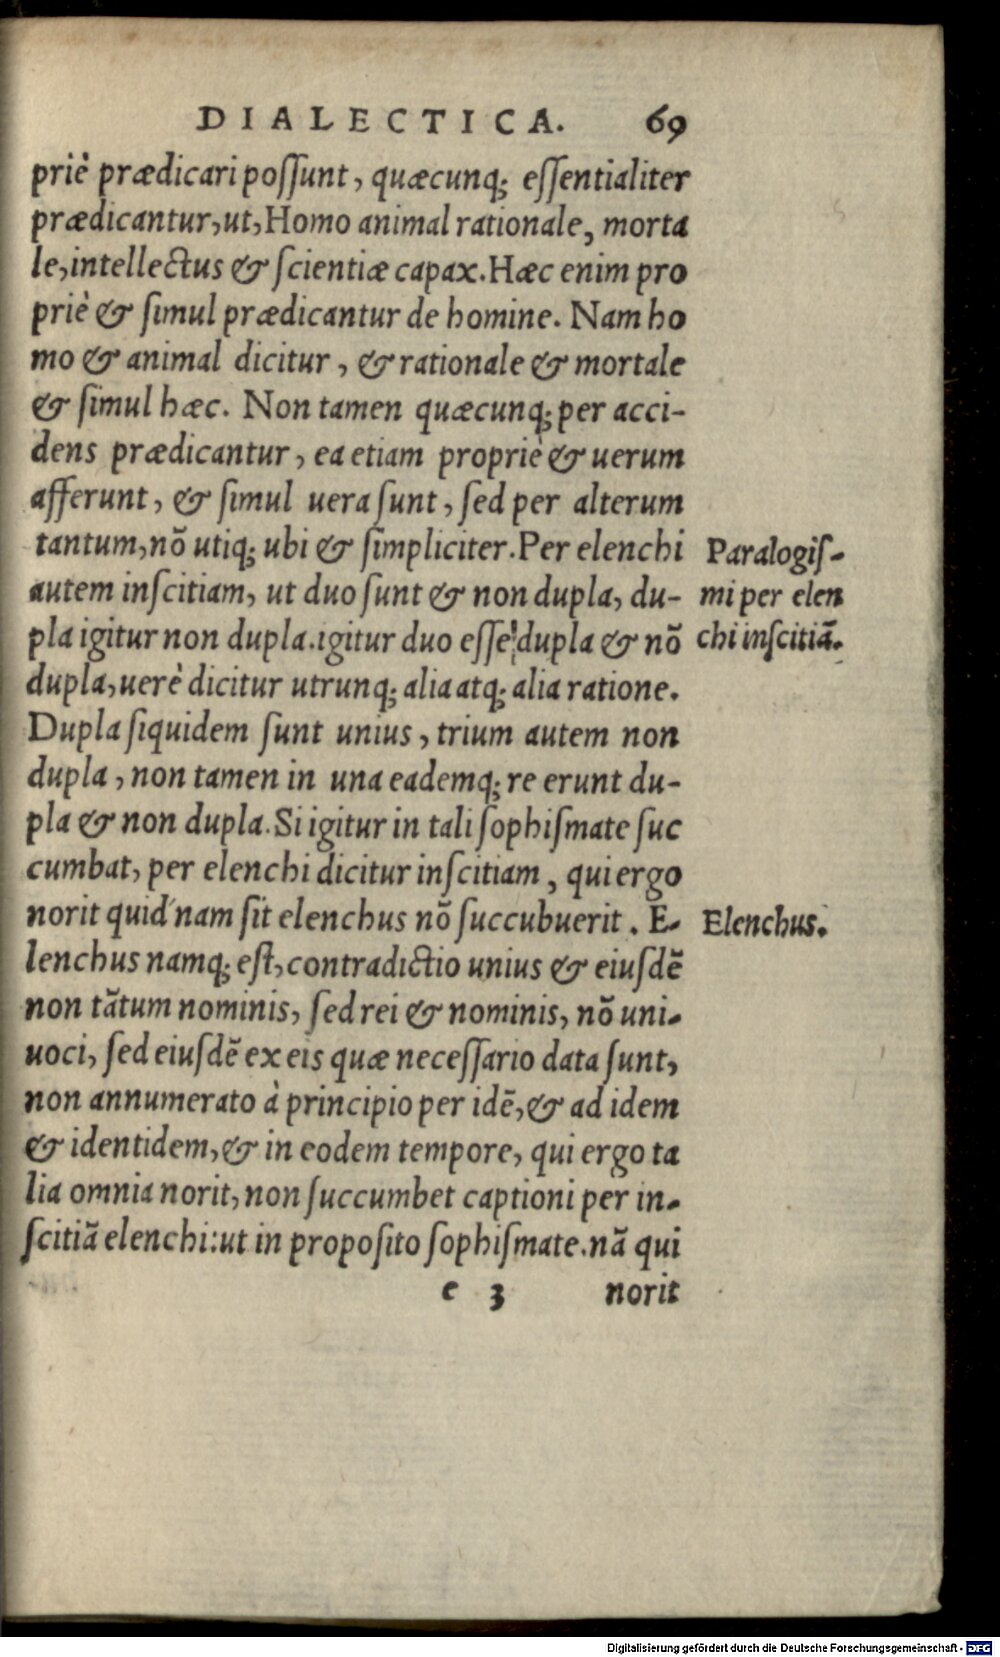 DIALECTICA. 69
priè prædicari poſſunt, quæcunq; eſſentialiter
prædicantur, ut, Homo animal rationale, morta
le, intellectus & ſcientiæ capax. Hæc enim pro
priè & ſimul prædicantur de homine. Nam ho
mo & animal dicitur, & rationale & mortale
& ſimul hæc. Non tamen quæcunq; per acci-
dens prædicantur, ea etiam propriè & uerum
afferunt, & ſimul uera ſunt, ſed per alterum
tantum, nõ utiq; ubi & ſimpliciter. Per elenchi
autem inſcitiam, ut duo ſunt & non dupla, du-
pla igitur non dupla. igitur duo eſſe dupla & nõ
dupla, uerè dicitur utrunq; alia atq; alia ratione.
Dupla ſiquidem ſunt unius, trium autem non
dupla, non tamen in una eademq; re erunt du-
pla & non dupla. Si igitur in tali ſophiſmate ſuc
cumbat, per elenchi dicitur inſcitiam, qui ergo
norit quid nam ſit elenchus nõ ſuccubuerit. E-
lenchus namq; eſt, contradictio unius & eiuſdẽ
non tãtum nominis, ſed rei & nominis, nõ uni-
uoci, ſed eiuſdẽ ex eis quæ neceſſario data ſunt,
non annumerato à principio per idẽ, & ad idem
& identidem, & in eodem tempore, qui ergo ta
lia omnia norit, non ſuccumbet captioni per in-
ſcitiã elenchi: ut in propoſito ſophiſmate. nã qui
e 3 norit
Paralogiſ-
mi per elen
chi inſcitiã.
Elenchus.
Digitalisierung gefördert durch die Deutsche Forschungsgemeinschaft - DFG